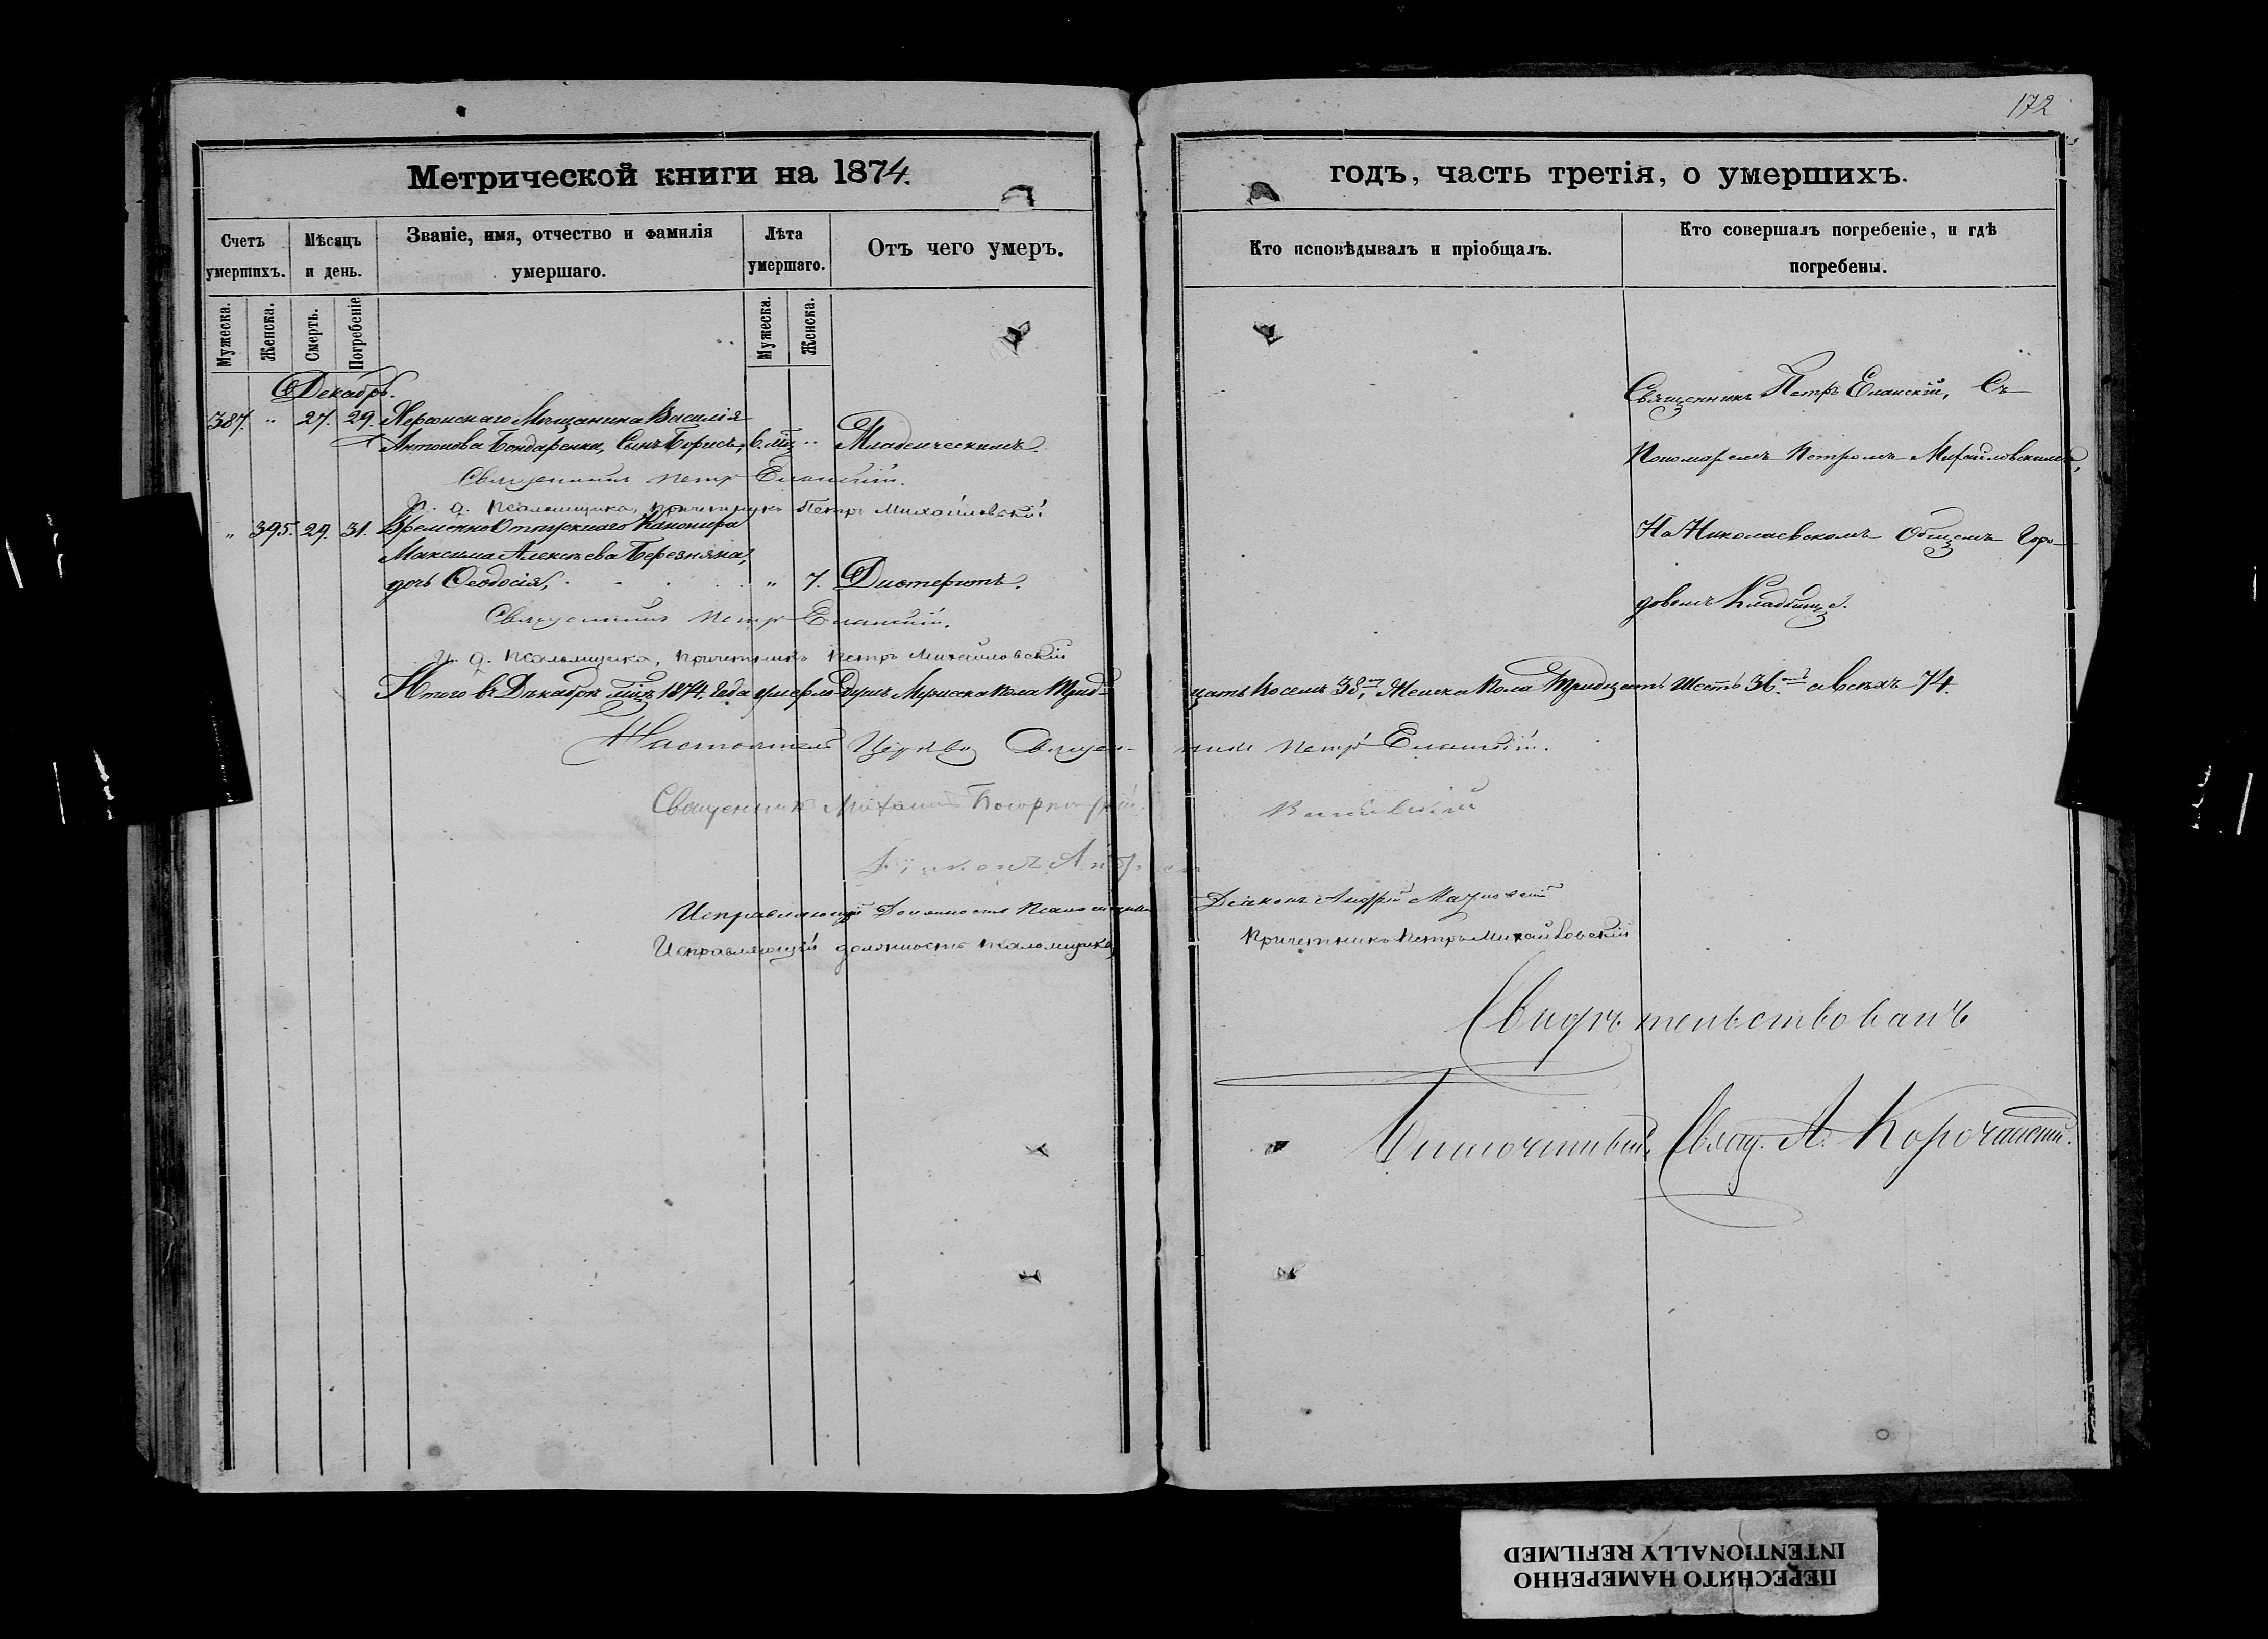 172
Метрической книги на 1874.
годъ, часть третія, о умершихъ.
Счетъ умершихъ.
Мѣсяцъ и день.
Званіе, имя, отчество и фамилія умершаго.
Лѣта умершаго.
Отъ чего умеръ.
Кто исповѣдывалъ и пріобщалъ.
Кто совершалъ погребеніе, и гдѣ погребены.
Мужеска.
Женска.
Смерть.
Погребеніе
Мужеска.
Женска.
Декабрь.
387. " 27. 29. Херсонскаго Мѣщанина Василія
Антонова Бондаренки, Сынъ Борисъ, 6. мѣц " Младенческимъ.
Священникъ Петръ Еланскій.
И. д. псаломщика, причетникъ Петръ Михайловскій
" 395. 29. 31. Временно Отпускнаго Канонира
Максима Алексѣева Березняка,
дочь Ѳеодосія, " 7. Дистеритъ.
Священникъ Петръ Еланскій.
И. д. псаломщика, причетникъ Петръ Михайловскій
Священникъ Петръ Еланскій, Съ
Пономаремъ Петромъ Михайловскимъ,
На Николаевскомъ Общемъ Горо-
довомъ Кладбищѣ.
Итого въ Декабрѣ мѣцѣ 1874. года умерло Душъ Мужеска пола Трид-
цать восемь 38, Женска пола Тридцать Шесть 36. а всѣхъ 74.
Настоятель Церкви Священ-
никъ Петръ Еланскій.
Священникъ Михаилъ
Діаконъ Андрей
Исправляющій Должность Псаломщика
Діаконъ Андрей
Исправляющій должность псаломщика,
Причетникъ Петръ Михайловскій
Свидѣтельствовалъ
Благочинный, Свящ. А. Корочанскій.
ПЕРЕСНЯТО НАМЕРЕННО
INTENTIONALLY REFILMED